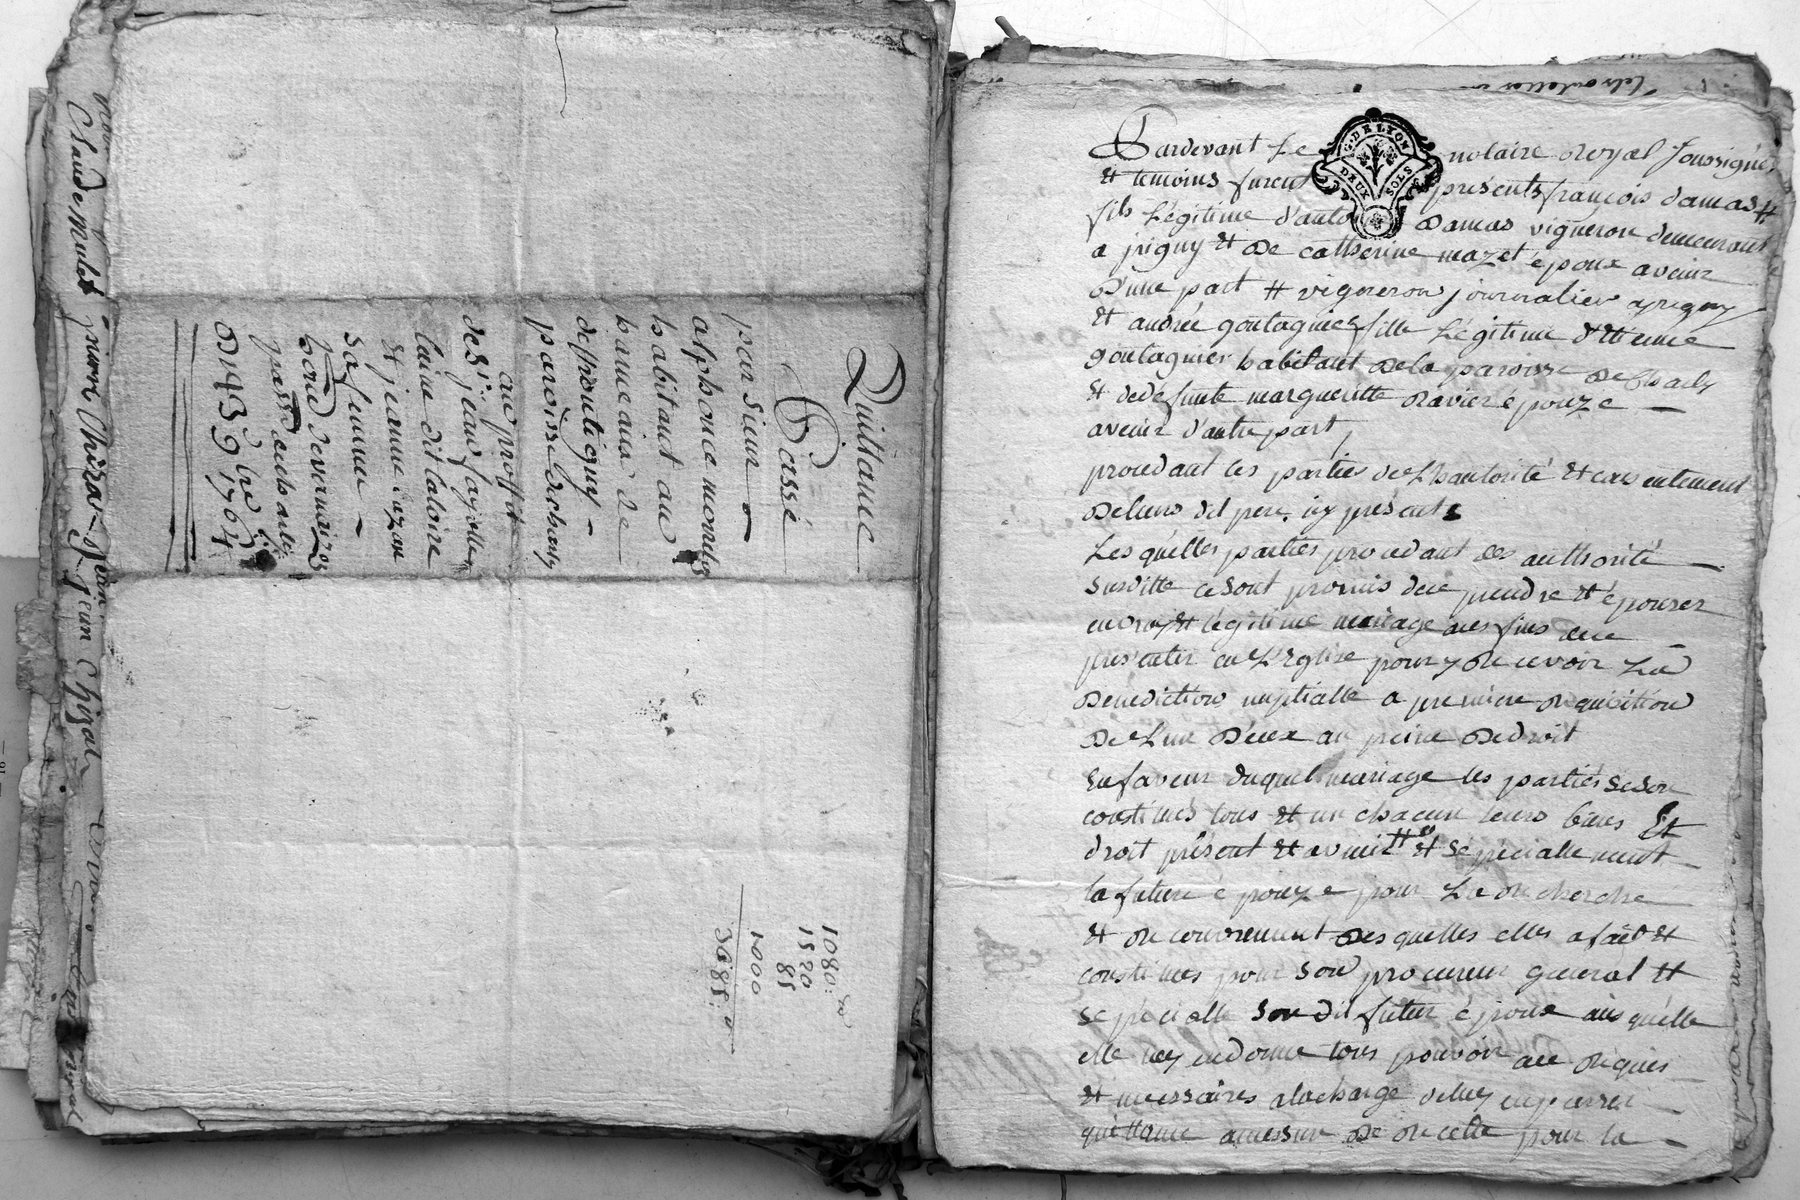 Claude mulet pierre Chiras jean
jean Chizat
royal
Quittance
Passé
par sieur
alphonce
habitant au
hameaux de
paroisse de charly
au proffit
de Sr. jean fayolle
laine dit
et jeanne cazau
sa femme
passé
Du 13 9bre 1764
1080
1520
85
1000
3685
Pardevant Le notaire Royal Soussigné
G. DE LYON
DEUX SOLS
et temoins furent présents françois damas #
fils Légitime d'antoi Damas vigneron demeurant
a jrigny et De catherine mazet époux avenir
D'une part # vigneron journalier a jrigny
et andrée goutagnier fille Légitime d'Etienne
goutagnier habitant De la paroisse De Charly
et de défunte margueritte Ravier épouze
avenir d'autre part,
procedant les parties de L'hautorité et consentement
De leurs dit pere, icy présents
Lesquelles parties procedant des authorité
Susditte ce sont promis de ce prendre et épouser
en vray et légitime mariage aux fins de ce
présenter en L'Eglise pour y Recevoir La
Benediction nuptialle a premiere Requisition
De L'un D'eux au peine De droit
En faveur duquel mariage les parties se son
constitués tous et un chacun leurs biens Et
droit présent et avenir # et sépecialle ment
la future épouze pour La Recherche
et Recouvrement Desquelles elles a fait et
constitués pour son procureur general et
sépécialle son dit futur époux auquelle
elle en donne tous pouvoir Requis
et necessaires a la charge d'en passer
quittance a mesure De Recette pour la